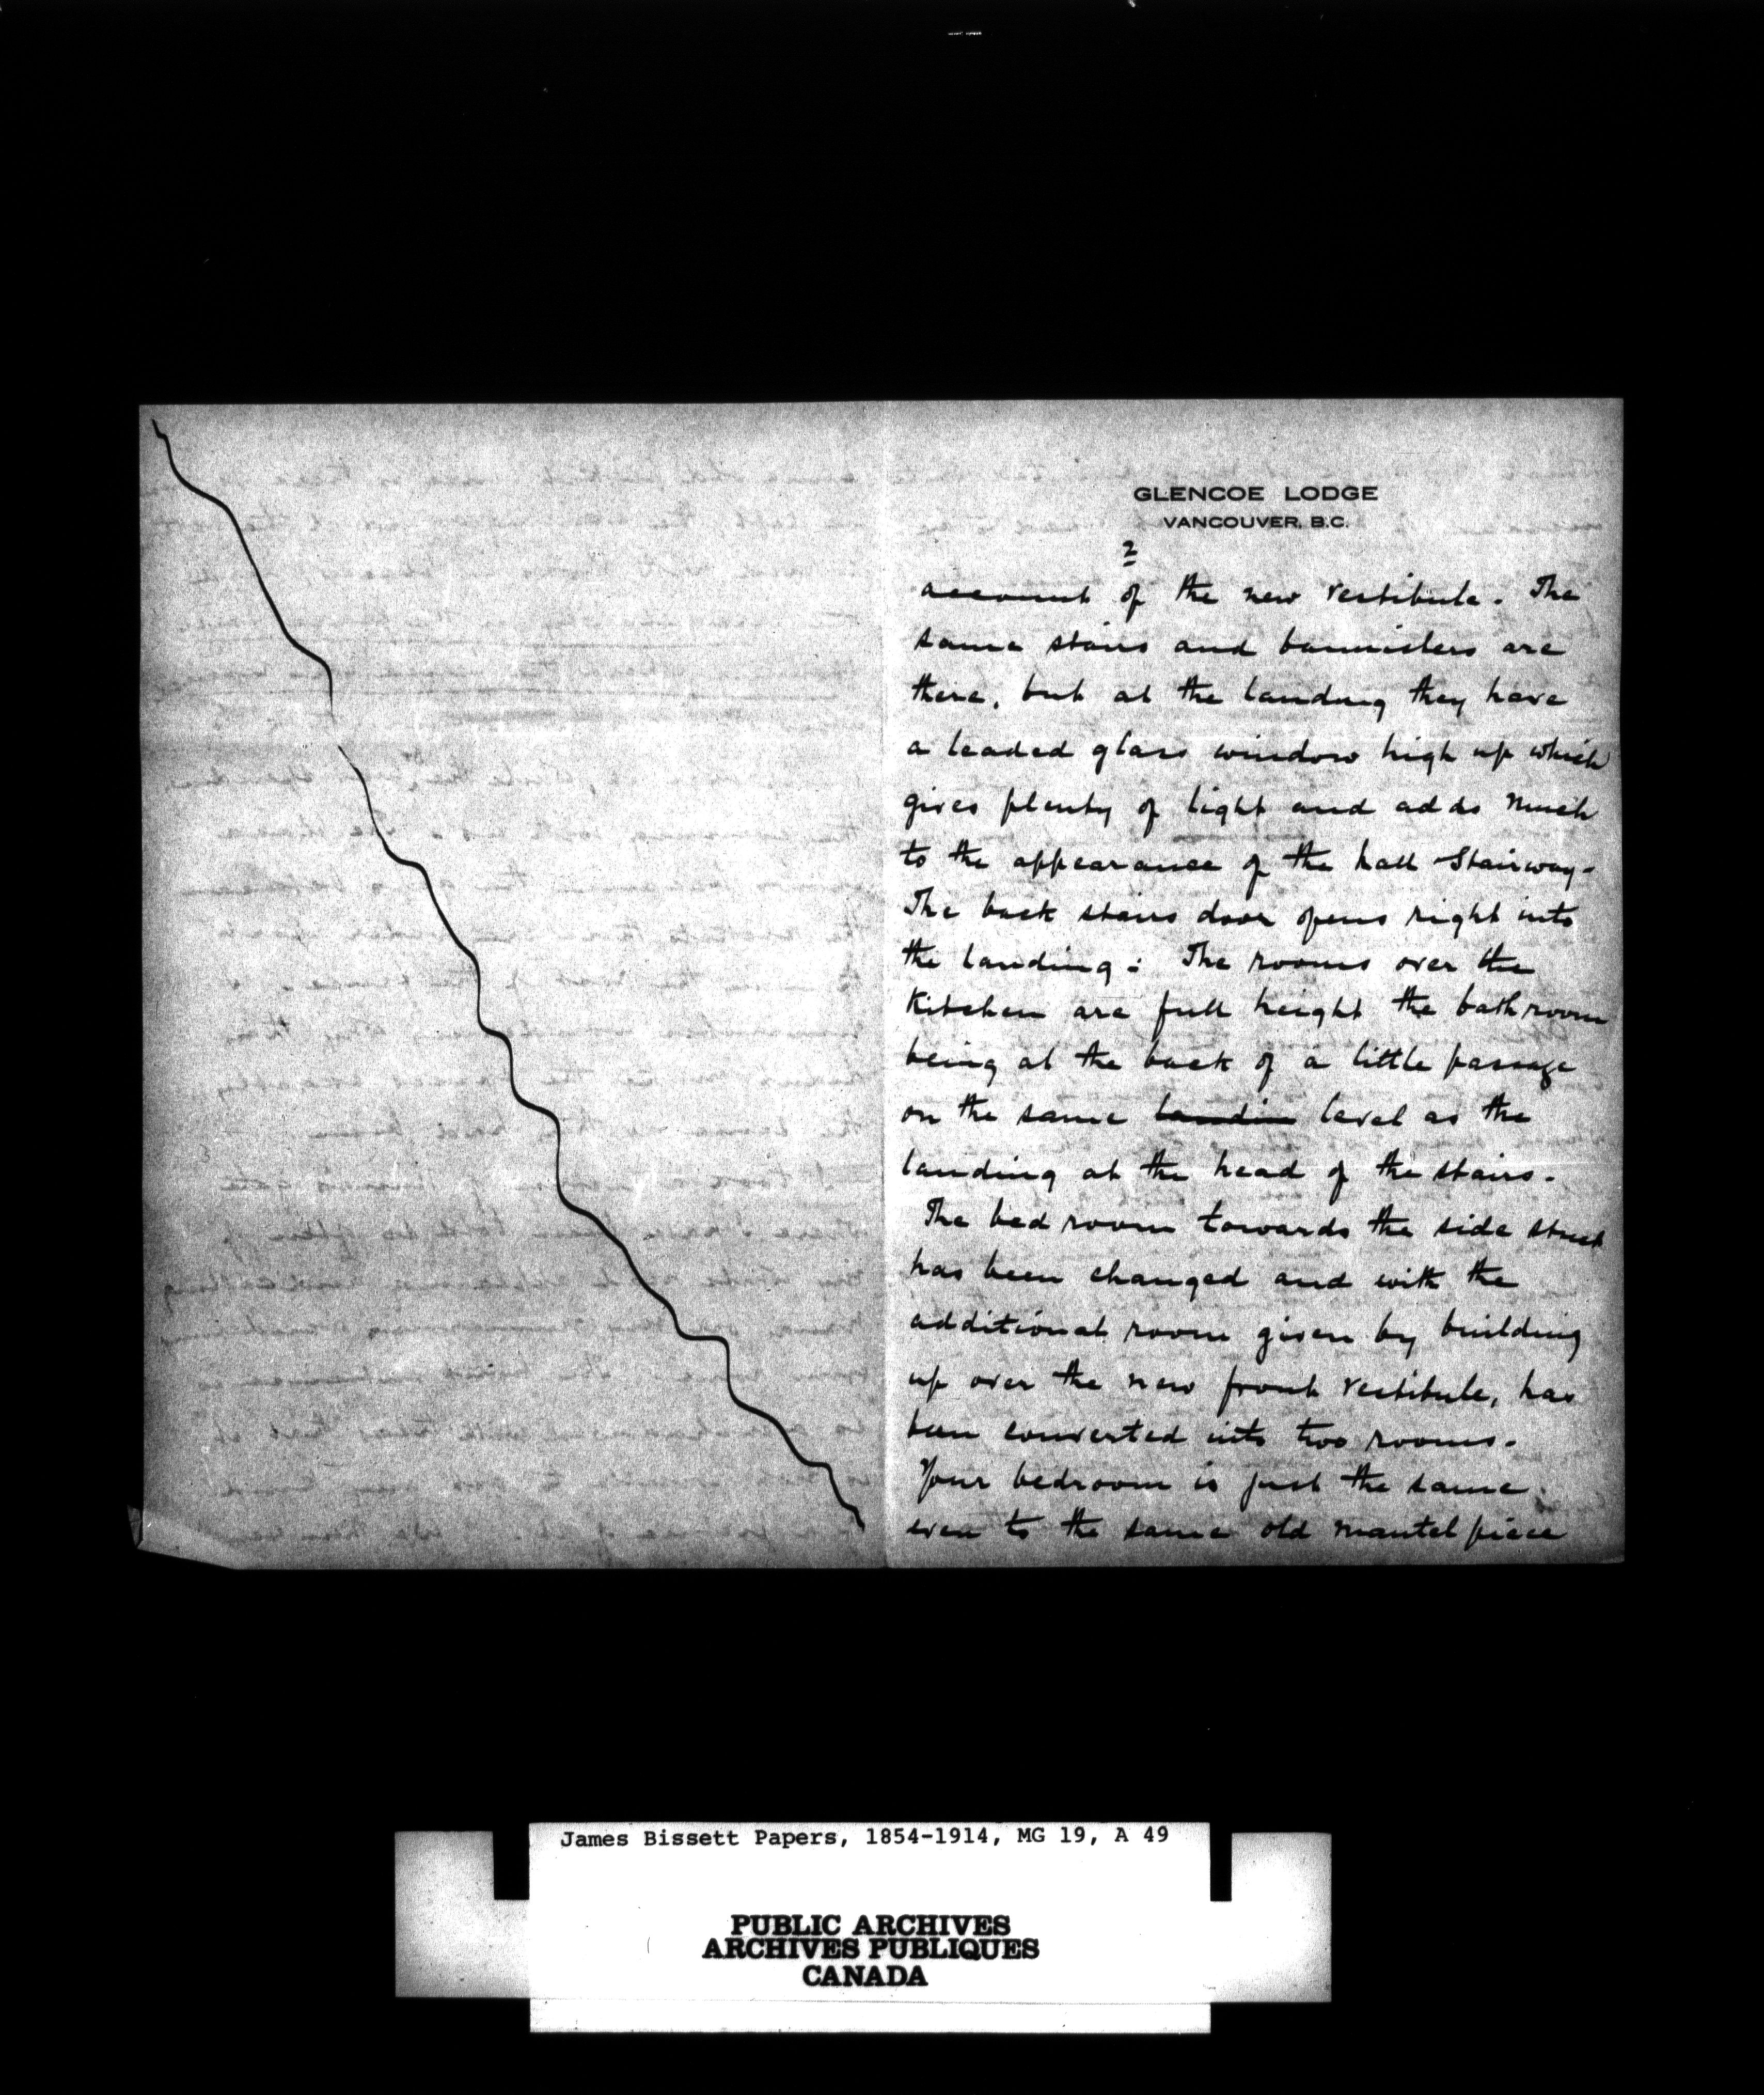 GLENCOE LODGE
VANCOUVER, B.C.
2
account of the new vestibule. The
same stairs and bannisters are
there, but at the landing they have
a leaded glass window high up which
gives plenty of light and adds much
to the appearance of the hall Stairway.
The back stairs door opens right into
the landing: The rooms over the
Kitchen are full height the bathroom
being at the back of a little passage
on the same landin level as the
landing at the head of the stairs.
The bed room towards the side street
has been changed and with the
additional room given by building
up over the new front vestibule, has
been converted into two rooms.
Your bedroom is just the same.
even to the same old mantel piece
James Bissett Papers, 1854-1914, MG 19, A 49
PUBLIC ARCHIVES
ARCHIVES PUBLIQUES
CANADA